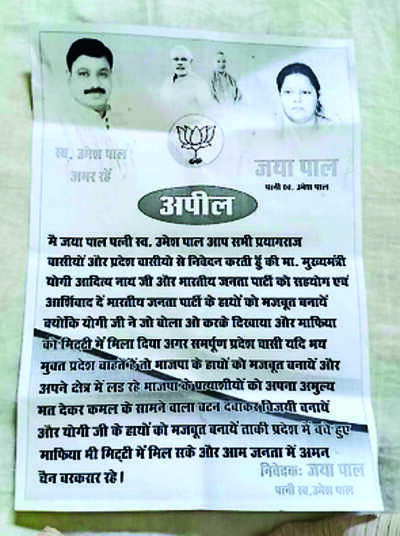 स्व. उमेश पाल
अमर रहें
जया पाल
पत्नी स्व. उमेश पाल
अपील
मै जया पाल पत्नी स्व. उमेश पाल आप सभी प्रयागराज
वासीयों और प्रदेश वासीयो से निवेदन करती हुँ की मा. मुख्यमन्त्री
योगी आदित्य नाथ जी और भारतीय जनता पार्टी को सहयोग एवं
आर्शिवाद दें भारतीय जनता पार्टी के हाथों को मजबूत बनायें
क्योकि योगी जी ने जो बोला ओ करके दिखाया और माफिया
को मिट्टी में मिला दिया अगर समर्पूण प्रदेश वासी यदि भय
मुक्त प्रदेश चाहते हैं तो भाजपा के हाथों को मजबूत बनायें और
अपने क्षेत्र में लड रहे भाजपा के प्रत्याशीयों को अपना अमुल्य
मत देकर कमल के सामने वाला बटन दबाकर विजयी बनायें
और योगी जी के हाथों को मजबूत बनायें ताकी प्रदेश में बचे हुए
माफिया भी मिट्टी में मिल सके और आम जनता में अमन
चैन बरकरार रहे।
निवेदक: जया पाल
पत्नी स्व. उमेश पाल